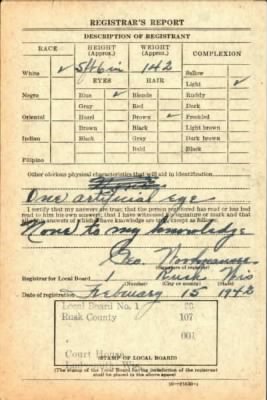 REGISTRAR'S REPORT
DESCRIPTION OF REGISTRANT
RACE HEIGHT (Approx.) WEIGHT (Approx.) COMPLEXION
5ft 6in 142
White ✓ EYES HAIR Sallow
Light ✓
Negro Blue ✓ Blonde Ruddy
Gray Red Dark
Oriental Hazel Brown ✓ Freckled
Brown Black Light brown
Indian Black Gray Dark brown
Bald Black
Filipino
Other obvious physical characteristics that will aid in identification
One artificial eye
I certify that my answers are true; that the person registered has read or has had
read to him his own answers; that I have witnessed his signature or mark and that
all of his answers of which I have knowledge are true, except as follows:
None to my knowledge
Geo.
(Signature of registrar)
Registrar for Local Board 1 Rusk Wis
(Number) (City or county) (State)
Date of registration February 15 1942
Local Board No. 1 55
Rusk County 107
001
Court House
Ladysmith, Wis.
(STAMP OF LOCAL BOARD)
(The stamp of the Local Board having jurisdiction of the registrant
shall be placed in the above space)